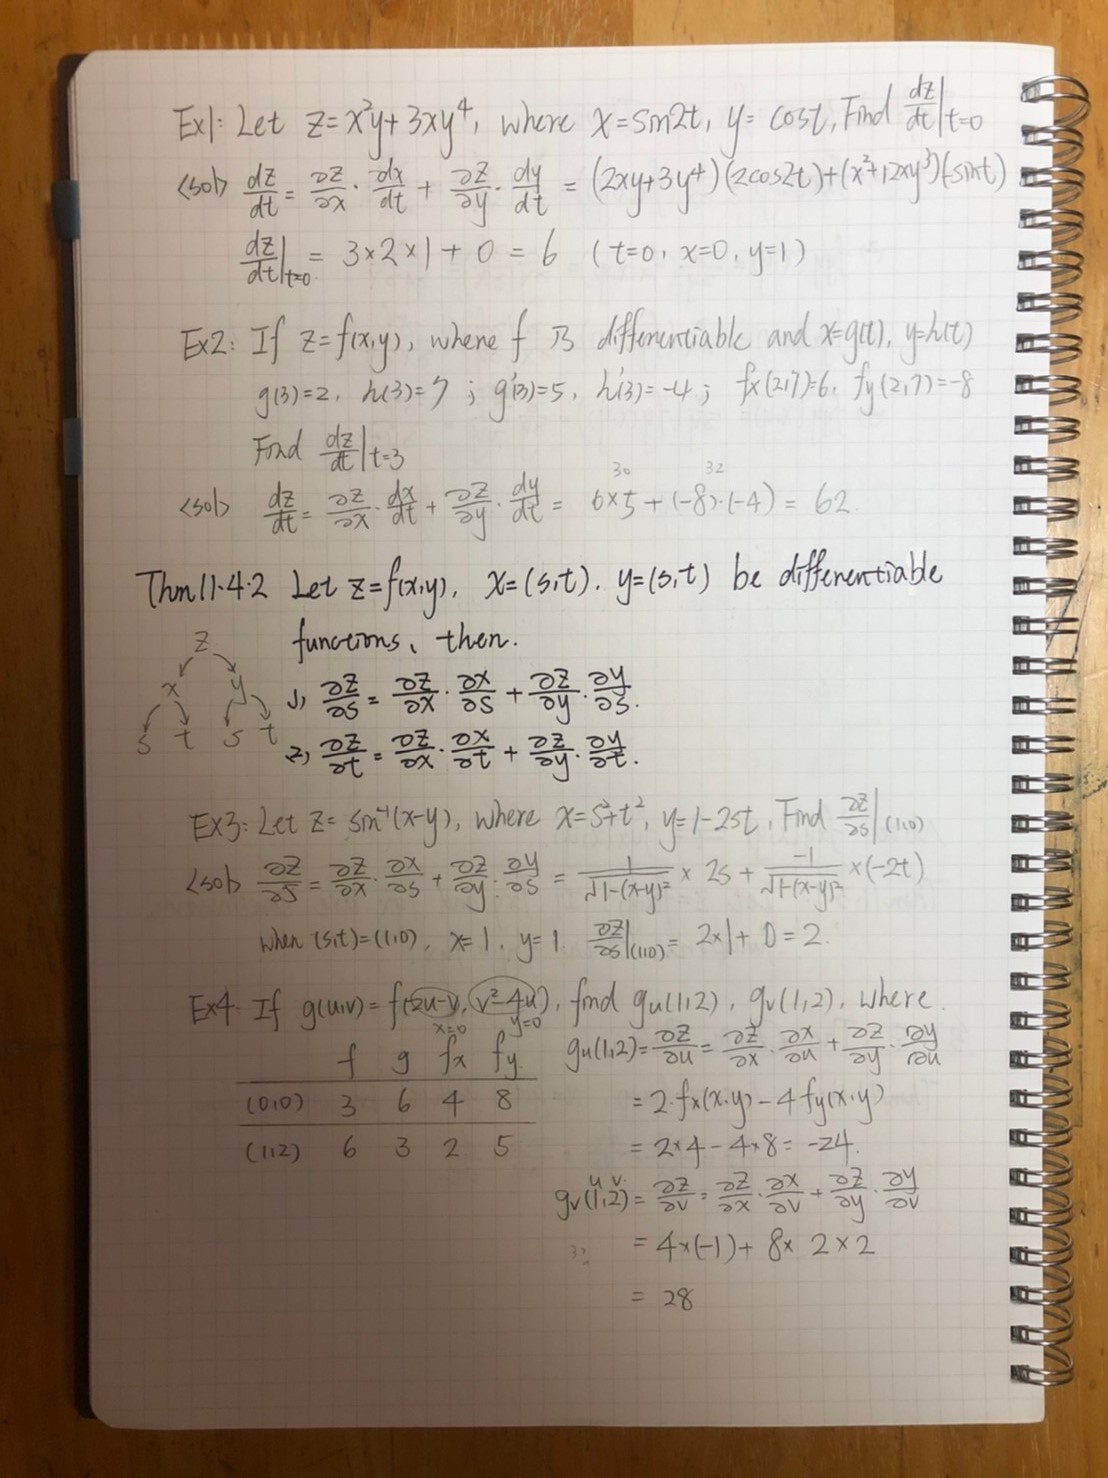 Ex1: Let z=x²y+3xy⁴, where x=sin2t, y=cost, Find dz/dt|t=0
<sol> dz/dt = ∂z/∂x · dx/dt + ∂z/∂y · dy/dt = (2xy+3y⁴)(2cos2t)+(x²+12xy³)(-sint)
dz/dt|t=0 = 3×2×1+0 = 6 (t=0, x=0, y=1)
Ex2: If z=f(x,y), where f is differentiable and x=g(t), y=h(t)
g(3)=2, h(3)=7 ; g'(3)=5, h'(3)=-4 ; fx(2,7)=6, fy(2,7)=-8
Find dz/dt|t=3
30 32
<sol> dz/dt = ∂z/∂x · dx/dt + ∂z/∂y · dy/dt = 6×5+(-8)·(-4) = 62.
Thm 11.4.2 Let z=f(x,y), x=(s,t), y=(s,t) be differentiable
functions, then.
z
x y
s t s t
1) ∂z/∂s = ∂z/∂x · ∂x/∂s + ∂z/∂y · ∂y/∂s.
2) ∂z/∂t = ∂z/∂x · ∂x/∂t + ∂z/∂y · ∂y/∂t.
Ex3: Let z=sin⁻¹(x-y), where x=s²+t², y=1-2st, Find ∂z/∂s|(1,0)
<sol> ∂z/∂s = ∂z/∂x · ∂x/∂s + ∂z/∂y · ∂y/∂s = 1/√1-(x-y)² × 2s + -1/√1-(x-y)² ×(-2t)
when (s,t)=(1,0), x=1, y=1. ∂z/∂s|(1,0) = 2×1+0=2.
Ex4: If g(u,v)=f(2u-v, v²-4u), find gu(1,2), gv(1,2), where.
x=0 y=0
f g fx fy
(0,0) 3 6 4 8
(1,2) 6 3 2 5
gu(1,2)=∂z/∂u = ∂z/∂x · ∂x/∂u + ∂z/∂y · ∂y/∂u
= 2·fx(x,y)-4fy(x,y)
= 2×4-4×8= -24.
u v.
gv(1,2)=∂z/∂v = ∂z/∂x · ∂x/∂v + ∂z/∂y · ∂y/∂v
= 4×(-1)+ 8× 2×2
32
= 28